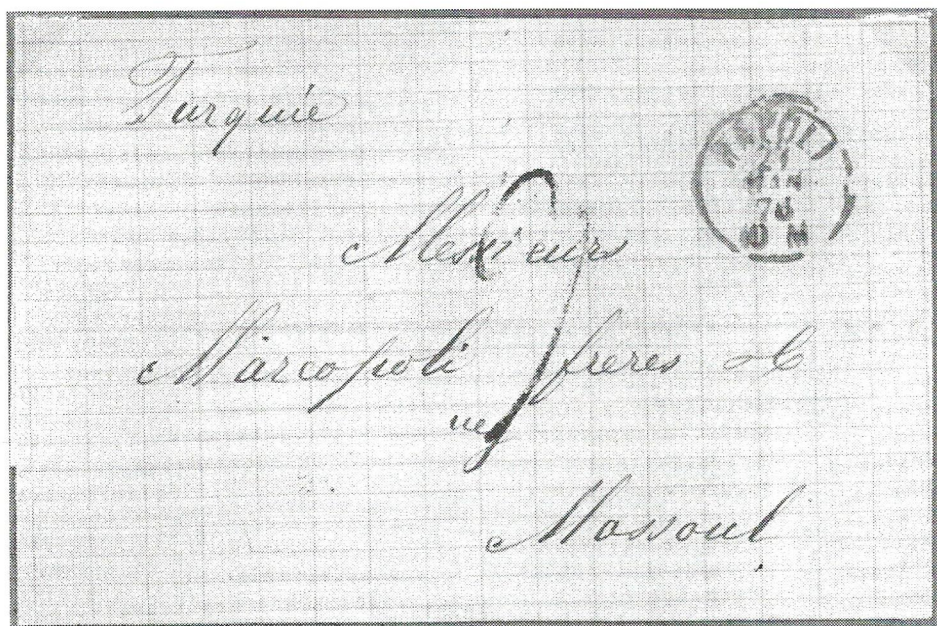 Turquie
NAPOLI
Messieurs
Marcopoli frères & C
Mossoul